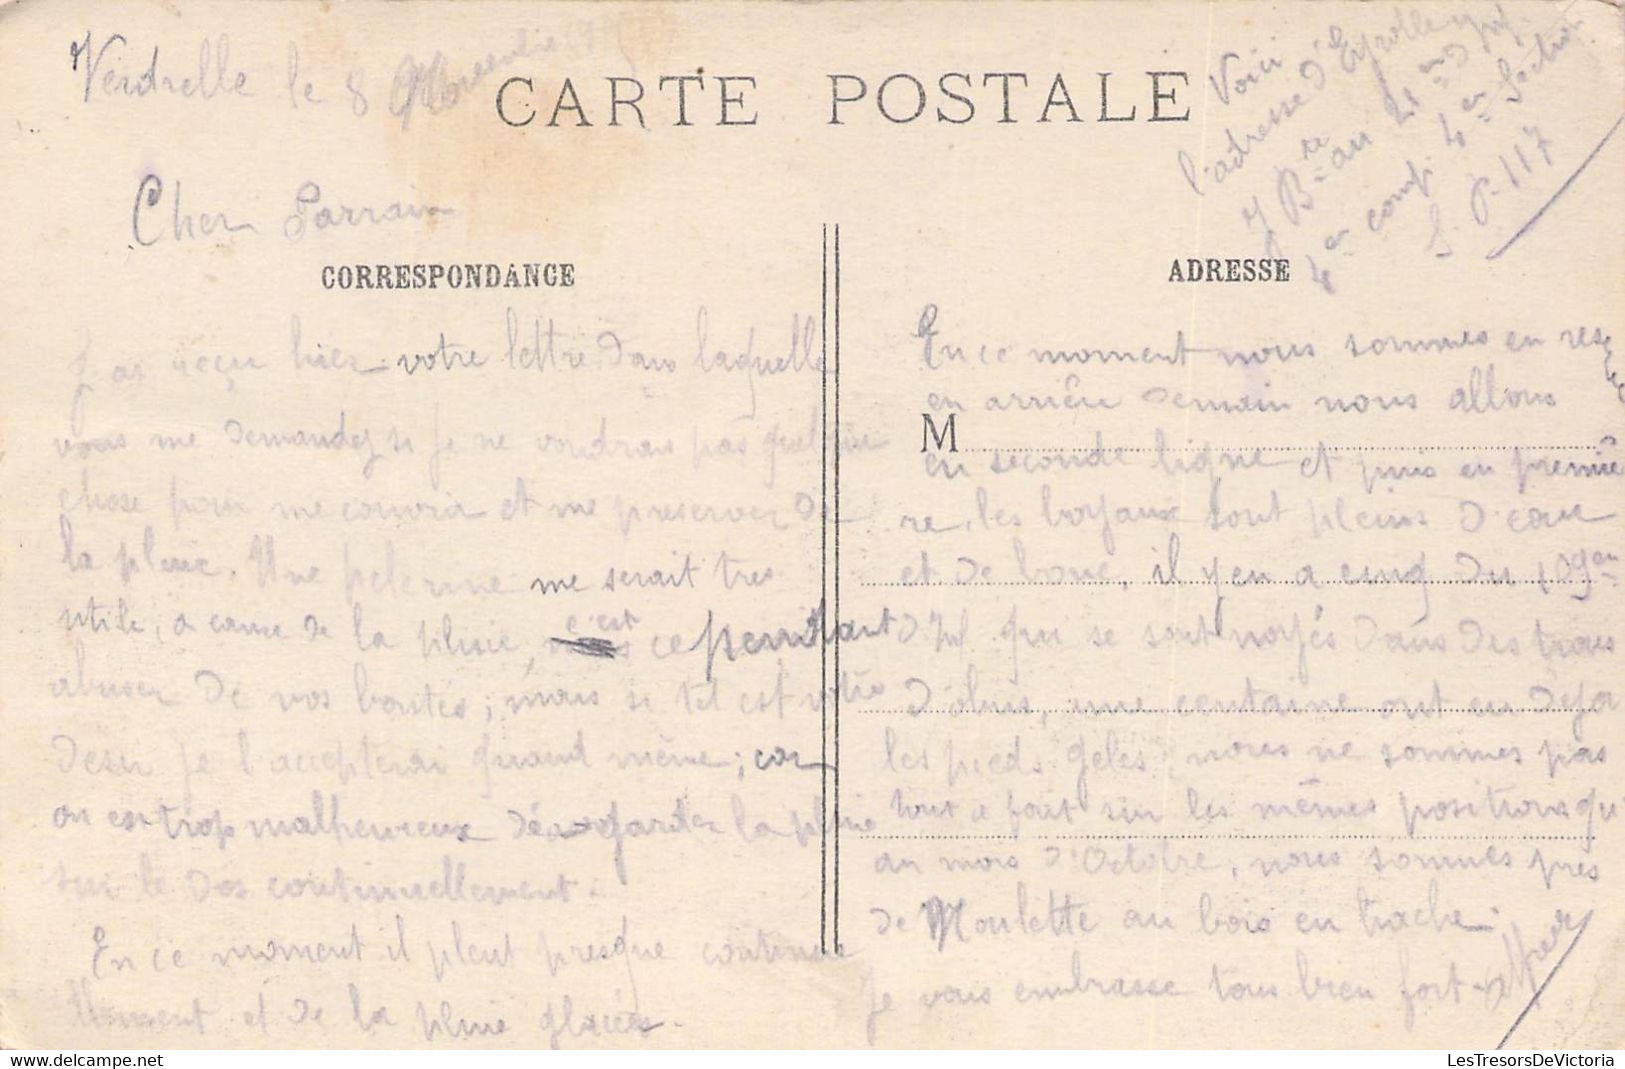 Verdrelle le 8 Novembre
CARTE POSTALE
Voici
l'adresse d'
J B re au 21 n d'Inf.
4 er comp. 4 er Section
S. p. 117
Cher Parrain
CORRESPONDANCE
ADRESSE
J'ai reçu hier votre lettre dans laquelle
vous me demandez si je ne voudrais pas quelque
chose pour me couvrir et me preserver de
la pluie. Une pelerine me serait tres
utile, a cause de la pluie, c'est cependant
abuser de vos bontés; mais si tel est votre
desir je l'accepterai quand même; car
on est trop malheureux de garder la pluie
sur le dos continuellement.
En ce moment il pleut presque continue
llement et de la pluie glacée.
En ce moment nous sommes en reserve
en arriêre demain nous allons
M
en seconde ligne et puis en premiê
re, les boyaux sont pleins d'eau
et de boue, il y en a cinq du 109 en
d'Inf. qui se sont noyés dans des trous
d'obus, une centaine ont eu deja
les pieds gelés, nous ne sommes pas
tout a fait sur les mêmes positions qu'
au mois d'Octobre, nous sommes près
de Noulette au bois en hache.
Je vous embrasse tous bien fort.
LesTresorsDeVictoria